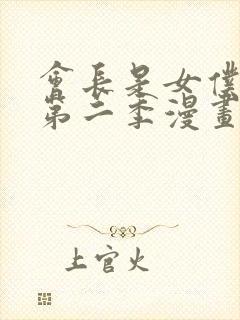 會長是女僕
第二季漫畫
上官火